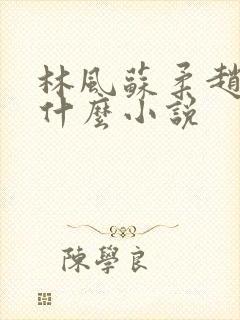 林風蘇柔趙
什麼小說
陳學良